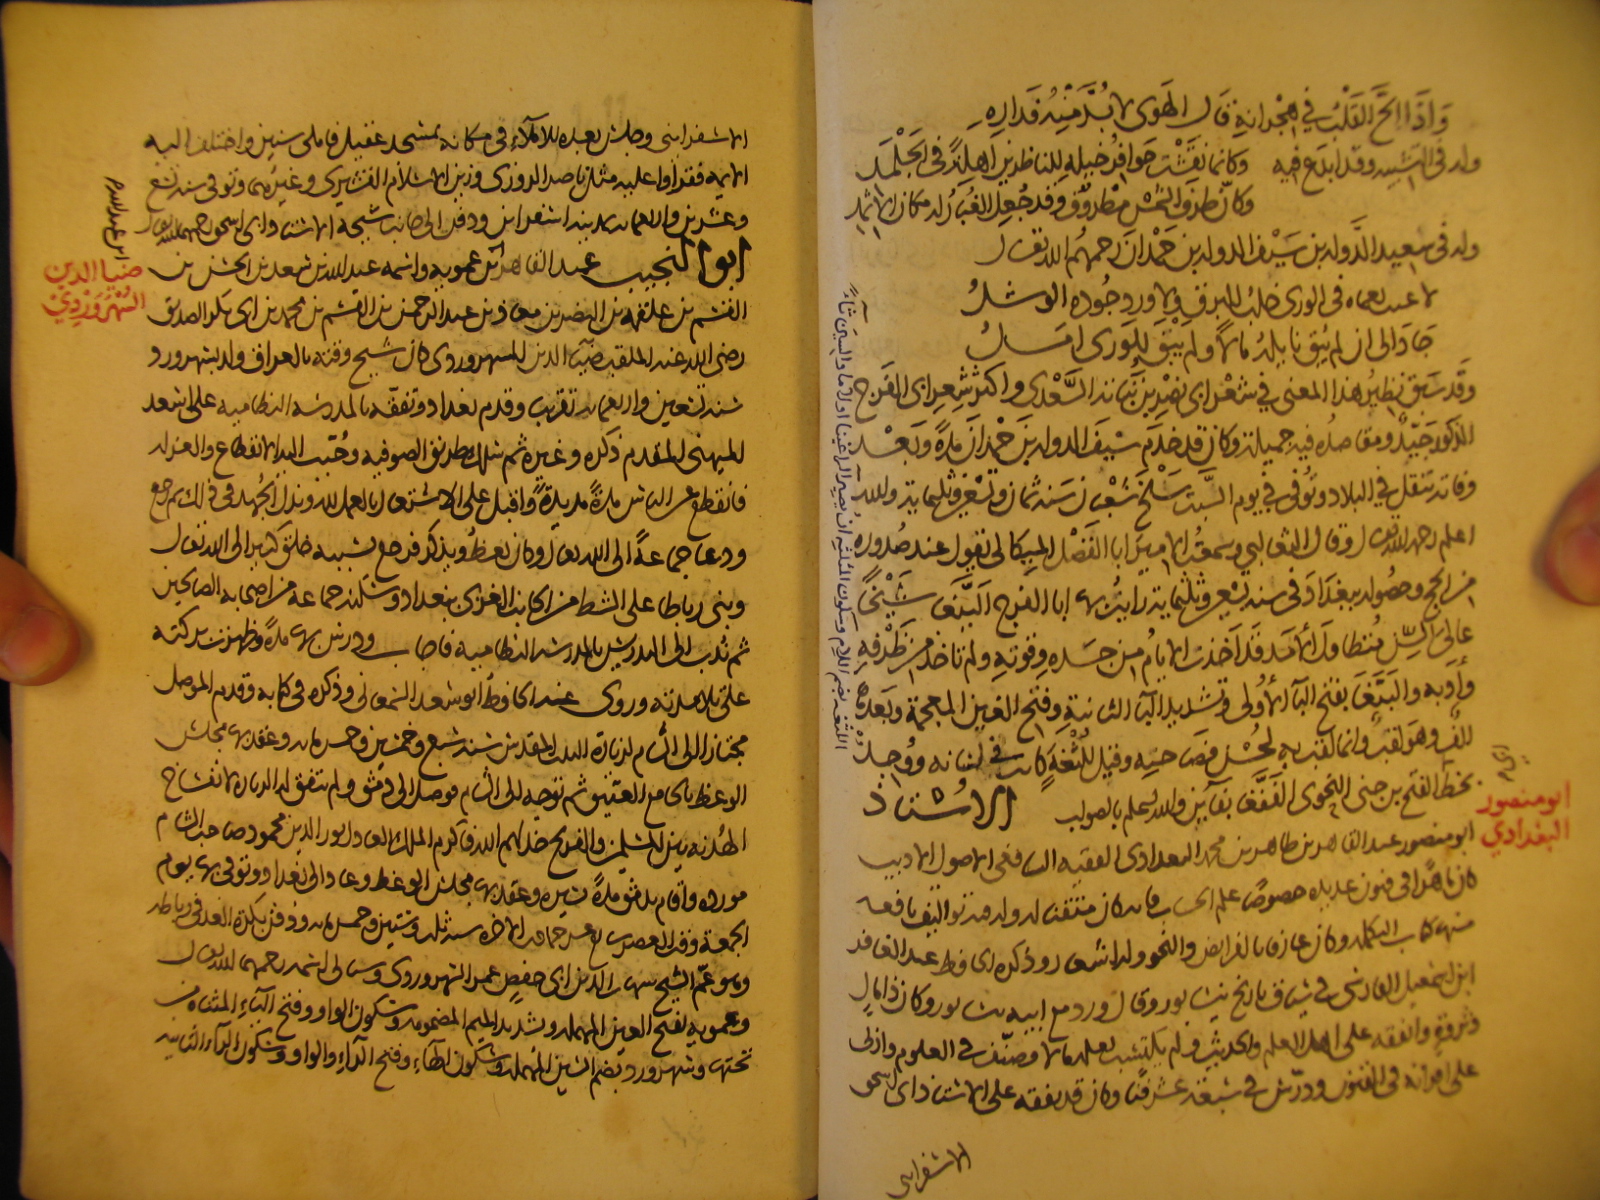 وَاذَا الحَّ القَلْبُ في هِجْرانِهِ قال الهَوى لا بُدَّ مِنْهُ فَدَارِهِ
وله في التشبيه وقد ابدع فيه وكانما نقشت حوافر خيله للناظرين اهلة في الجلمد
وكانّ طرف الشمس مطروف وقد جعل الغبار له مكان الاثمد
وله في سعيد الدوله بن سيف الدوله بن حمدان رحمهم الله تعال
لا غيث نعماه في الورى خلب البرق ولا ورد جوده الوشلُ
جاد الى ان لم يبق نايله مالا ولم يبق للورى امل
وقد سبق نظير هذا المعنى في شعر ابى نصر بن نباته السعدي واكثر شعر ابى الفرج
المذكور جيد ومقاصده فيه جميلة وكان قد خدم سيف الدوله بن حمدان مدة وبعد
وفاته تنقل في البلاد وتوفى في يوم السبت سلخ شعبان سنة ثمان وتسعين وثلثمايه والله
اعلم رحمه الله تعال وقال الثعالبي وسمعت الامير ابا الفضل الميكالى يقول عند صدوره
من الحج وحصوله ببغداد في سنة تسعين وثلثمايه رايت بها ابا الفرج الببغا شيخا
عالى السن متطاول الامد قد اخذت الايام من جسده وقوته ولم تاخذ من ظرفه
وأدبه والببغا بفتح البا الاولى وتشديد البآ الثانية وفتح الغين المعجمة وبعدها
الف وهو لقب وانما لقب به لحسن فصاحته وقيل للثغة كانت في لسانه ووجد
بخط ابى الفتح بن جنى النحوى الففغا بفآين والله اعلم بالصواب الاستاذ
ابو منصور عبد القاهر بن طاهر بن محمد البغدادى الفقيه الشافعى الاصولى الاديب
كان ماهرا فى فنون عديده خصوصا علم الحساب فانه كان متقنا له وله فيه تواليف نافعه
منها كتاب التكمله وكان عارفا بالفرايض والنحو وله اشعار وذكره الحافظ عبد الغافر
ابن اسمعيل الفارسى فى سياق تاريخ نيسابور وقال ورد مع ابيه نيسابور وكان ذا مال
وثروة وانفقه على اهل العلم والحديث ولم يكتسب بعلمه مالا وصنّف في العلوم واربى
على اقرانه فى الفنون ودرّس في سبعة عشر فنًا وكان قد تفقه على الاستاذ ابى اسحق
الاسفراينى
ابو منصور
البغدادي
الاسفراينى وجلس بعده للاملاء فى مكانه بمسجد عقيل فاملى سنين واختلف اليه
الايمه فقراوا عليه مثل ناصر المروزى وزين الاسلام القشيرى وغيرهما وتوفى سنه تسع
وعشرين واربعمايه بمدينه اسفراين ودفن الى جانب شيخه الاستاذ ابى اسحق رحمهما الله تعال
ابو النجيب عبد القاهر بن عمويه واسمه عبد الله بن سعد بن الحسن بن
القسم بن علقمه بن النضر بن معاذ بن عبد الرحمن بن القسم بن محمد بن ابى بكر الصديق
رضى الله عنه الملقب ضيآ الدين السهروردى كان شيخ وقته بالعراق ولد بسهرورد
سنه تسعين واربعمايه تقريبا وقدم بغداد وتفقّه بالمدرسه النظاميه على اسعد
الميهنى المقدم ذكره وغيره ثم سلك طريق الصوفيه وحُبّب اليه الانقطاع والعزله
فانقطع عن الناس مدةً مديدةً واقبل على الاشتغال بالعمل لله وبذل الجهد فى ذلك ثم رجع
ودعا جماعةً الى الله تعال وكان يعظُ ويذكر فرجع بسببه خلق كثير الى الله تعال
وبنى رباطا على الشط من الجانب الغربى ببغداد وسكنه جماعة من اصحابه الصالحين
ثم ندب الى التدريس بالمدرسه النظاميه فاجاب ودرس بها مدة وظهرت بركته
على تلامذته وروى عنه الحافظ ابو سعد السمعانى وذكره فى كتابه وقدم الموصل
مجتازا الى الشام لزيارة البيت المقدس سنه سبع وخمسين وخمسمايه وعقد بها مجلس
الوعظ بالجامع العتيق ثم توجه الى الشام فوصل الى دمشق ولم تتفق له الزيارة لانفساخ
الهُدنه بين المسلمين والفرنج خذلهم الله فاكرم الملك العادل نور الدين محمود صاحب الشام
مورده واقام بدمشق مدةً يسيرة وعقد بها مجلس الوعظ وعاد الى بغداد وتوفى بها يوم
الجمعة وقت العصر سابع عشر جمادى الاخره سنه ثلث وستين وخمسمايه ودفن بكرة الغد فى رباطه
وهو عمّ الشيخ شهاب الدين ابى حفص عمر السهروردى وسياتى اسمه رحمهما الله تعال
وعمويه بفتح العين المهمله وتشديد الميم المضمومه وسكون الواو وفتح اليآء المثناه من
تحتها وسهرورد بضم السين المهمله وسكون الهآء وفتح الرآء والواو وسكون الرآء الثانيه
ضيا الدين
السهروردي